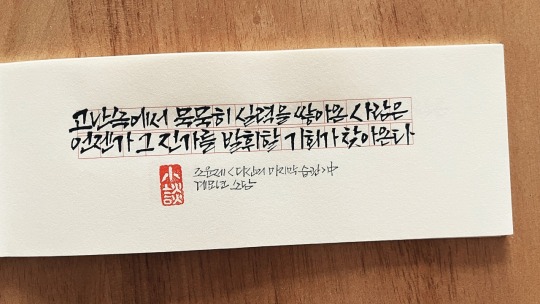 고난속에서 묵묵히 실력을 쌓아온 사람은
언젠가 그 진가를 발휘할 기회가 찾아온다
小談
조윤제 <다산의 마지막 습관> 中
소담